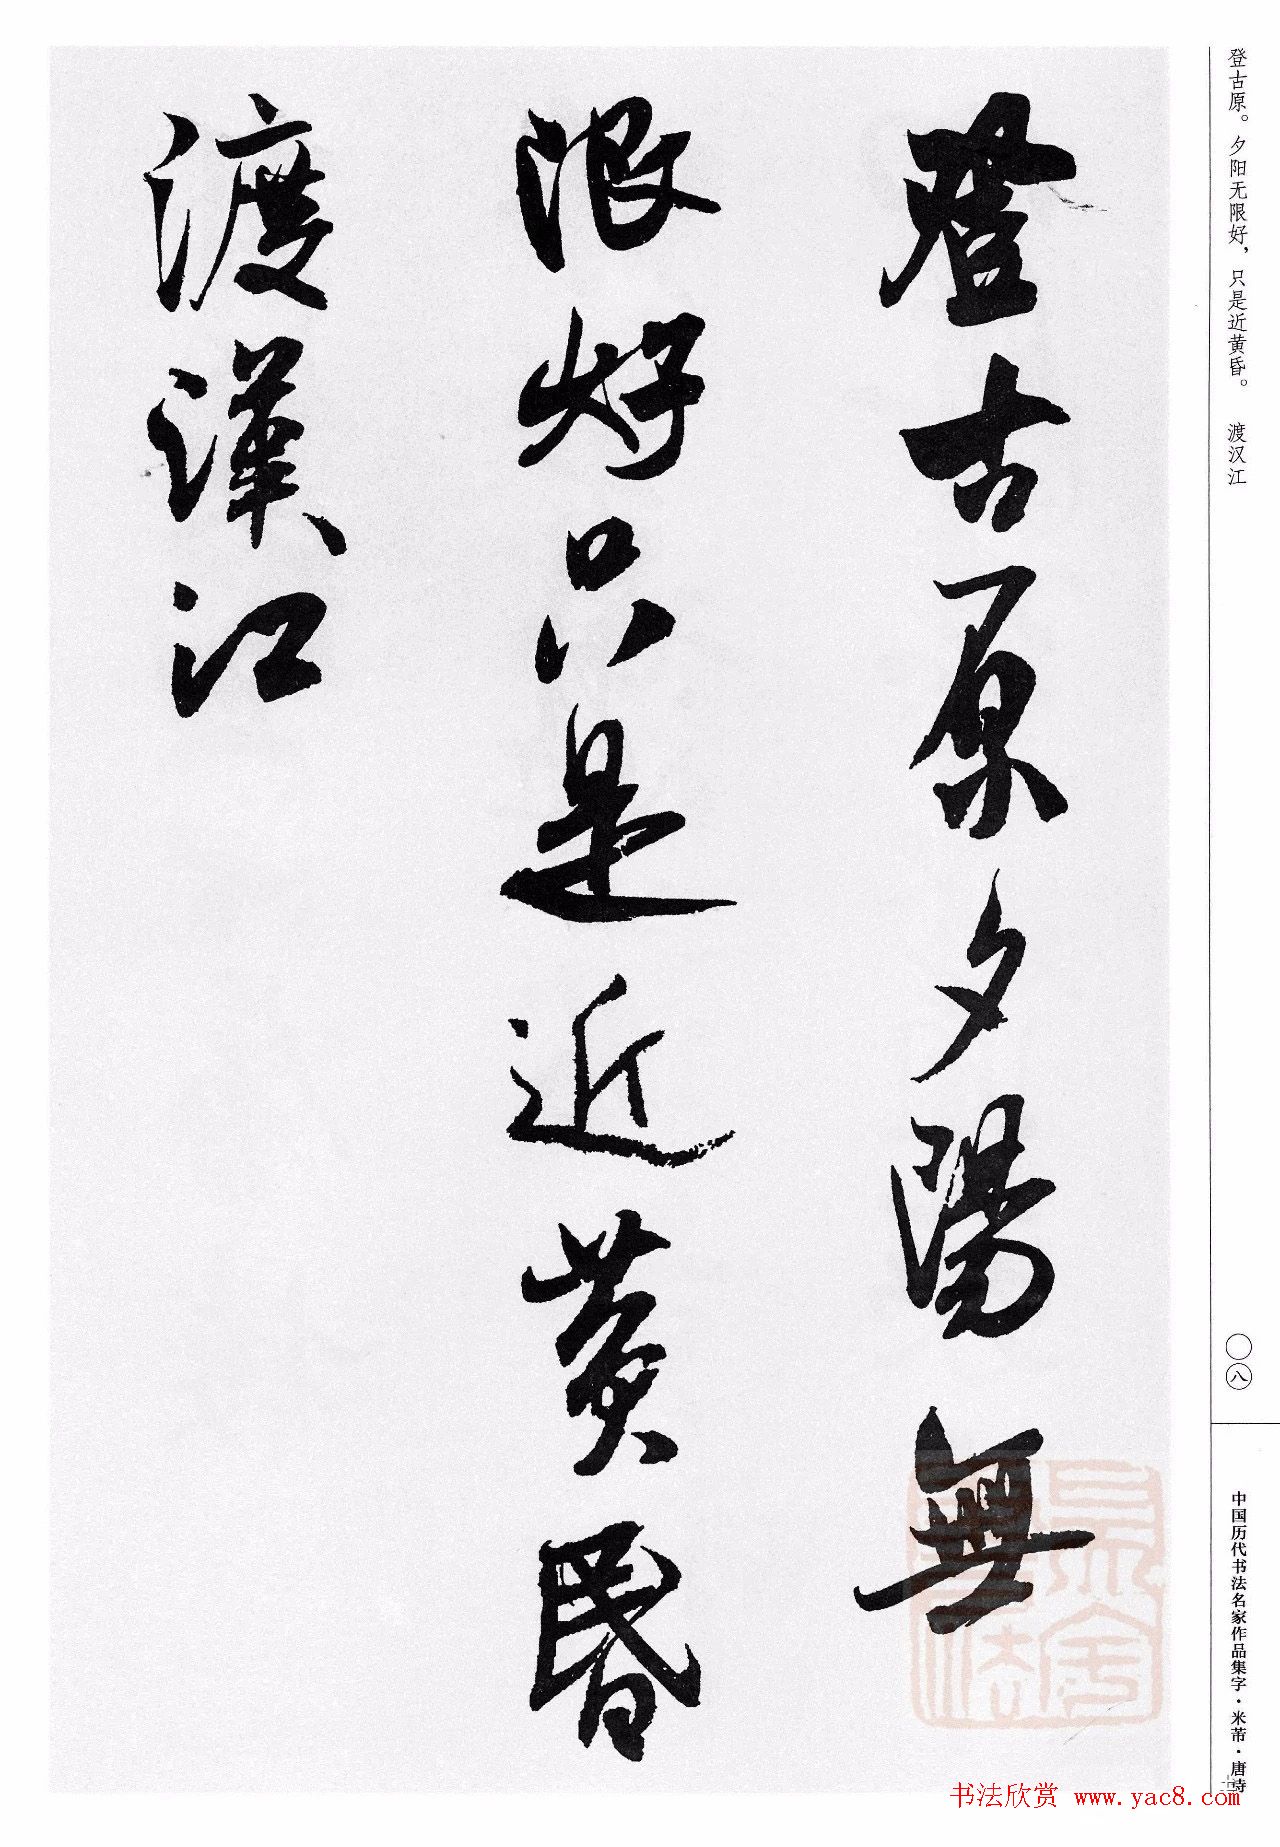 登古原。夕阳无限好，只是近黄昏。 渡汉江
登古原夕陽無
限好只是近黄昏
渡漢江
〇八
中国历代书法名家作品集字·米芾·唐诗
书法欣赏 www.yac8.com